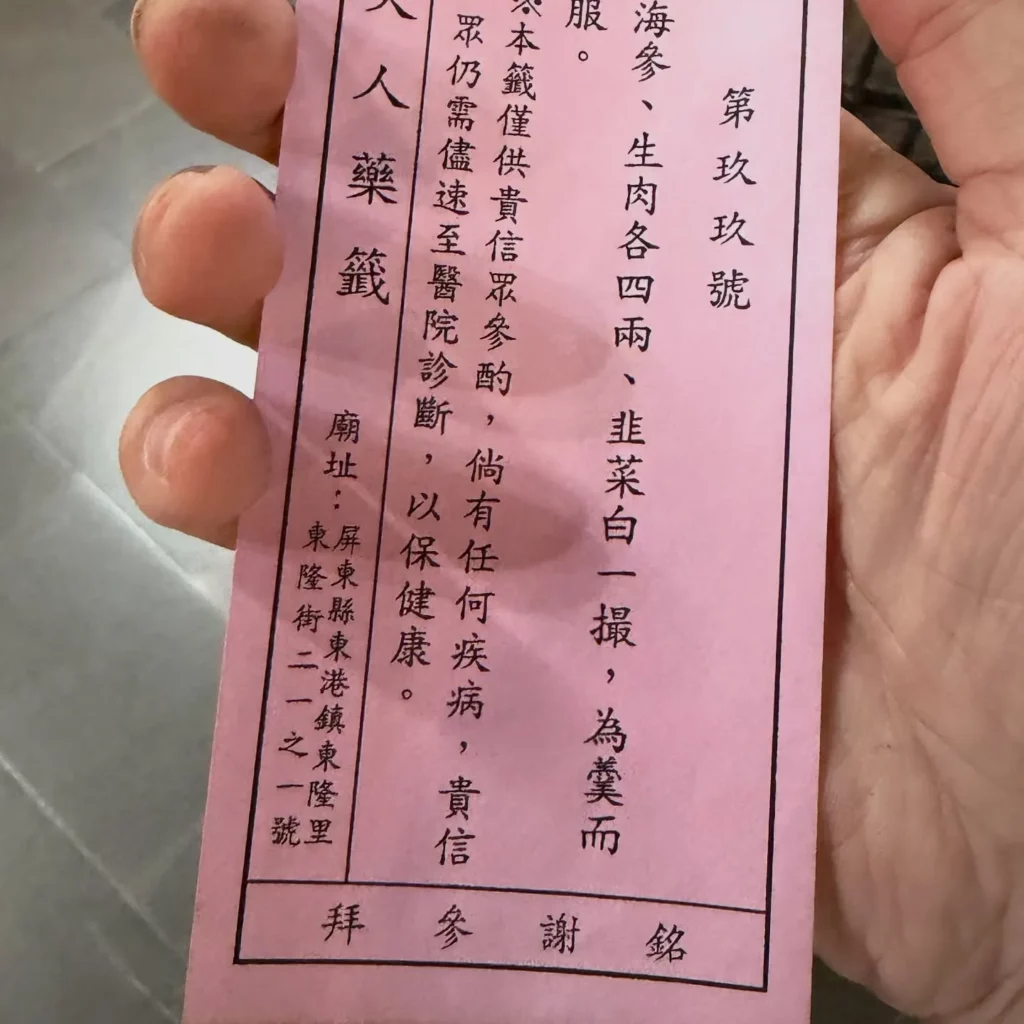 第玖玖號
海參、生肉各四兩、韭菜白一撮，為羹而
服。
本籤僅供貴信眾參酌，倘有任何疾病，貴信
眾仍需儘速至醫院診斷，以保健康。
人藥籤
廟址：屏東縣東港鎮東隆里
東隆街二一之一號
銘謝參拜